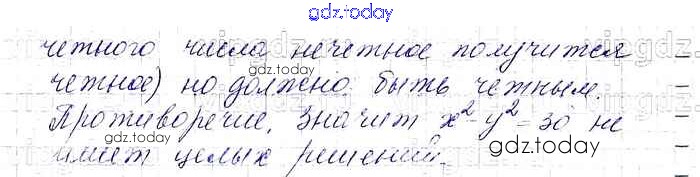 gdz.today
четного числа нечетное получится
четное) но должено быть четным.
gdz.today
Противоречие, значит x²-y²=30 не
имеет целых решений.
gdz.today